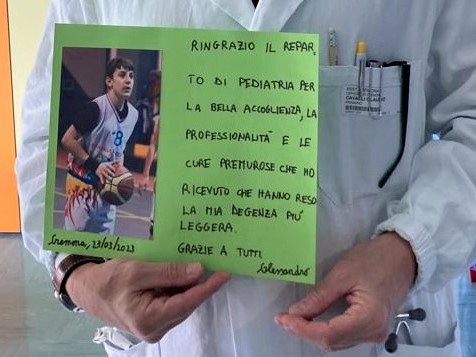 RINGRAZIO IL REPAR-
TO DI PEDIATRIA PER
LA BELLA ACCOGLIENZA, LA
PROFESSIONALITÀ E LE
CURE PREMUROSE CHE HO
RICEVUTO CHE HANNO RESO
LA MIA DEGENZA PIÙ
LEGGERA.
GRAZIE A TUTTI
Alessandro
Cremona, 23/03/2023
8
CAVALLI CLAUDIO